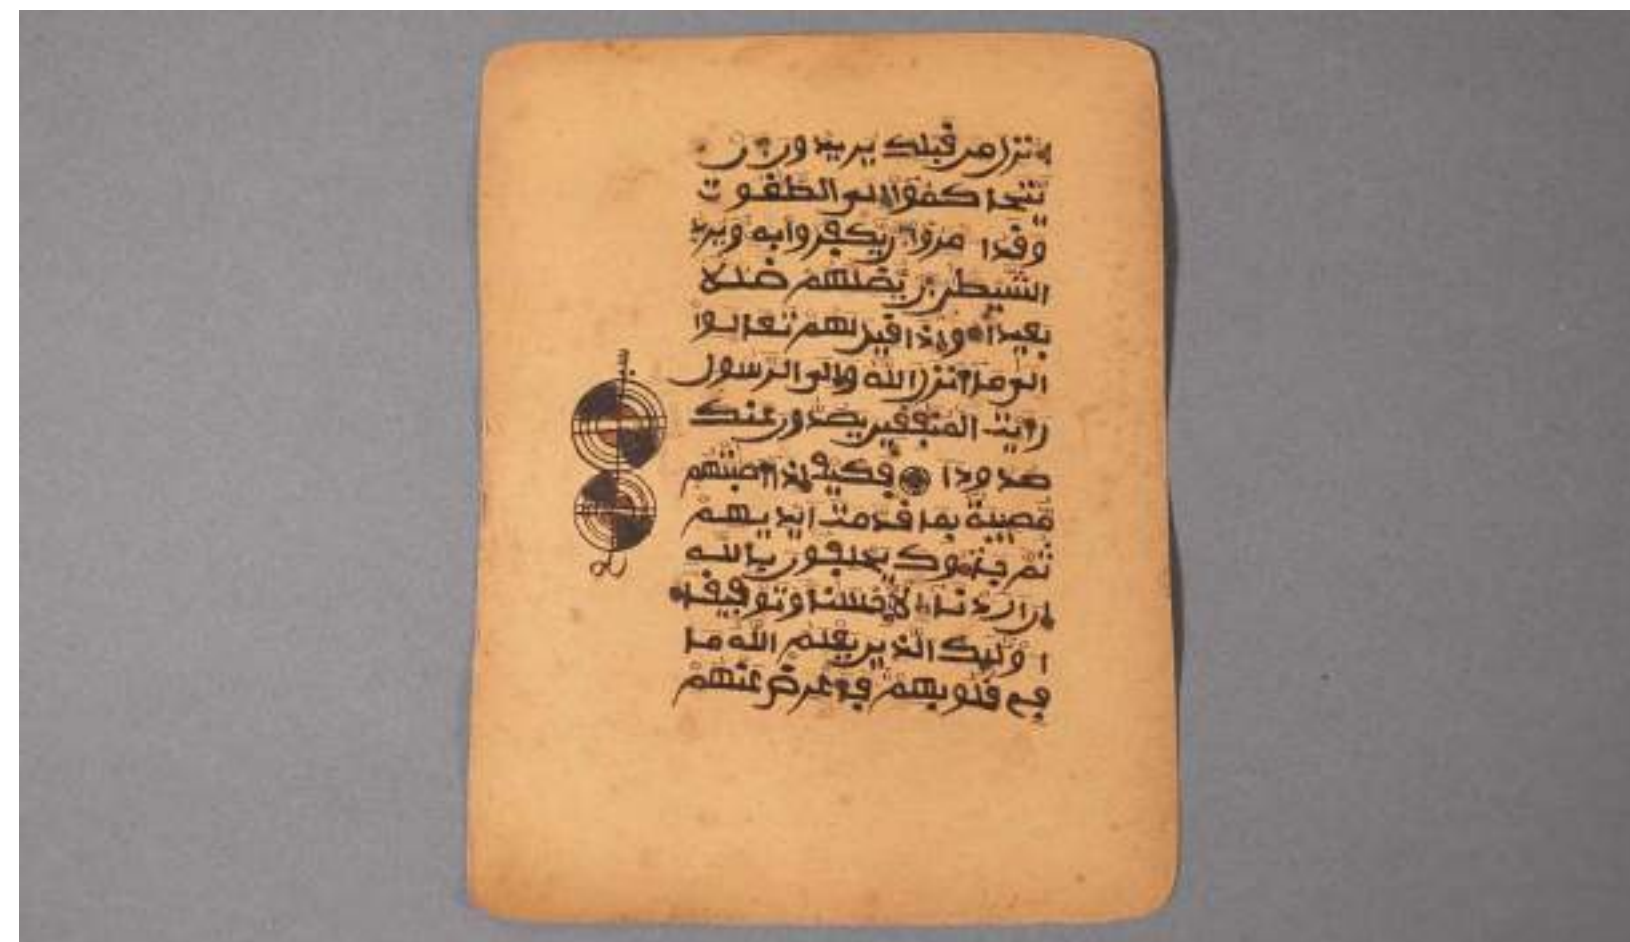 انزل من قبلك يريدون ان
يتحاكموا الى الطغوت
وقد امروا ان يكفروا به ويريد
الشيطن ان يضلهم ضللا
بعيدا واذا قيل لهم تعالوا
الى ما انزل الله والى الرسول
رايت المنفقين يصدون عنك
صدودا فكيف اذا اصبتهم
مصيبة بما قدمت ايديهم
ثم جاءوك يحلفون بالله
ان اردنا الا احسنا وتوفيقا
اوليك الذين يعلم الله ما
في قلوبهم فاعرض عنهم